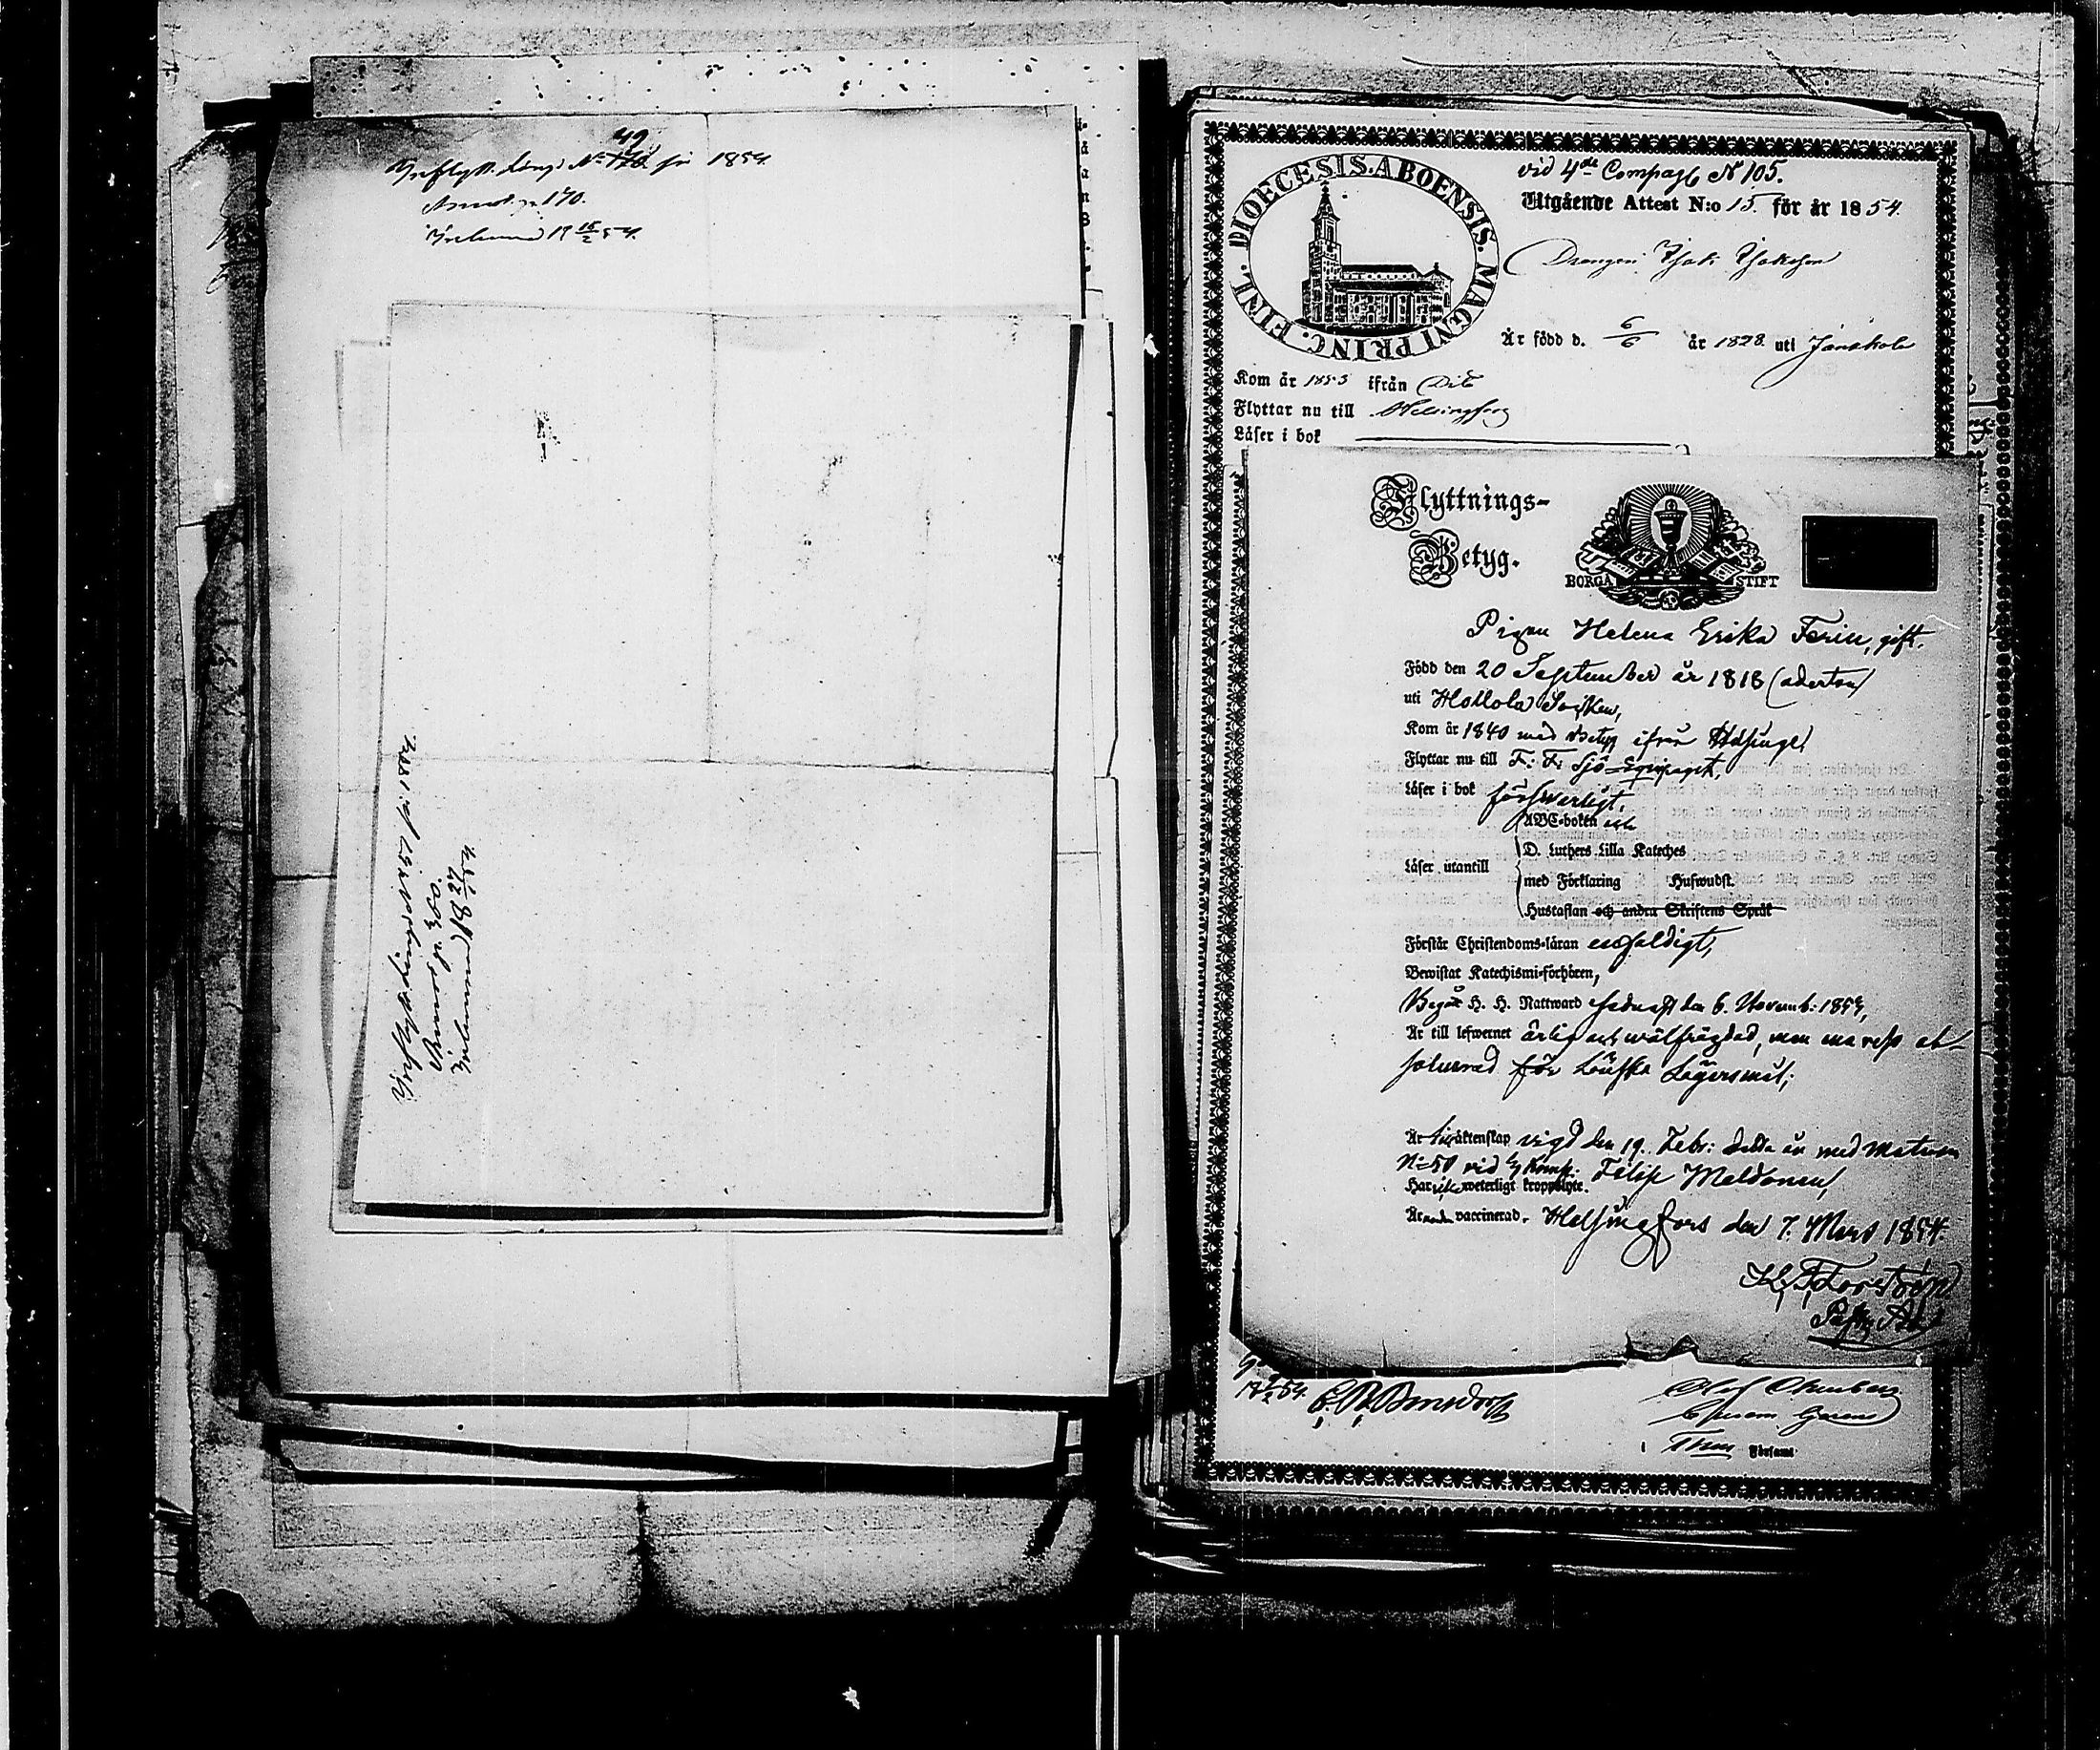 49
Inflyttn. Längd N:o för 1854.
Annot. p. 170.
Inlemnad 18 15/2 54.
Inflyttningsattest N:o 1854
Annot. p. 300
Inlemnad 18 54.
DIOECESIS. ABOENSIS. MAGNI PRINC. FINL.
vid 4de Compag N 105.
Utgående Attest N:o 15. för år 1854.
Drengen Isak Isaksson
Är född d. 6/6 år 1828. uti Janakala
Kom år 1853 ifrån Dito
Flyttar nu till Helsingfors
Läser i bok
Flyttnings-
Betyg.
BORGÅ STIFT
Pigan Helena Erika Forin, gift.
Född den 20 September år 1818 (aderton)
uti Hollola Socken,
Kom år 1840 med betyg ifrån
Flyttar nu till F: F: Sjö-Equipaget,
Läser i bok försvarligt,
ABC-boken och
Läser utantill D. Luthers Lilla Kateches
med Förklaring Huswudst.
Hustaflan och andra Skriftens Språk
Förstår Christendoms-läran enfaldigt,
Bewistat Katechismi-förhören,
Begår H. H. Nattward sednast den 6. Novemb: 1853,
Är till lefwernet ärlig och wälfrägdad, men en resa ab-
solverad för Lönska Lägersmål;
Är i äktenskap vigd den 19. Febr: detta år med Matrosen
N:o 50 vid Komp: Filip Meldonen,
Har icke weterligt kroppslyte.
Är vaccinerad. Helsingfors den 7. Mars 1854.
K. F. Forström
18 54.
Församl